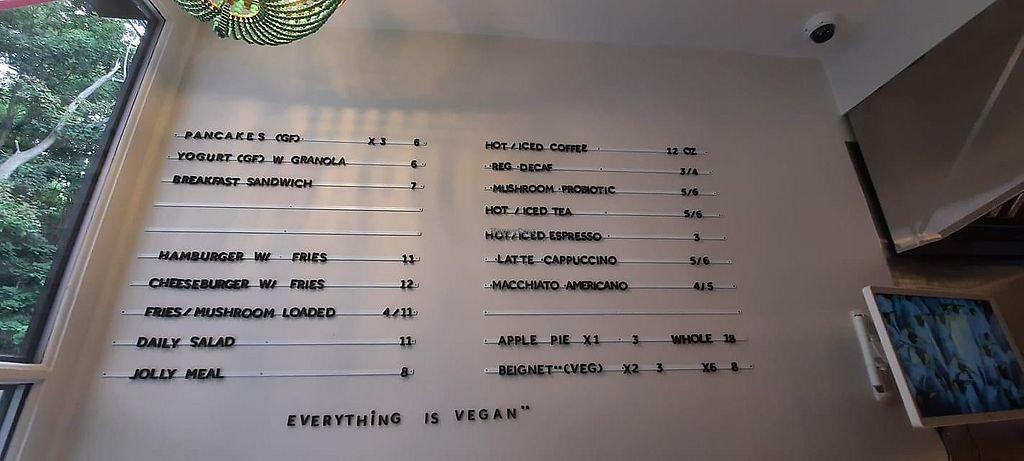 PANCAKES (GF) X3 6
YOGURT (GF) W GRANOLA 6
BREAKFAST SANDWICH 7
HAMBURGER W/ FRIES 11
CHEESEBURGER W/ FRIES 12
FRIES/MUSHROOM LOADED 4/11
DAILY SALAD 11
JOLLY MEAL 8
HOT/ICED COFFEE 12 OZ
REG DECAF 3/4
MUSHROOM PROBIOTIC 5/6
HOT/ICED TEA 5/6
HOT/ICED ESPRESSO 3
LATTE CAPPUCCINO 5/6
MACCHIATO AMERICANO 4/5
APPLE PIE X1 3 WHOLE 18
BEIGNET**(VEG) X2 3 X6 8
EVERYTHING IS VEGAN**